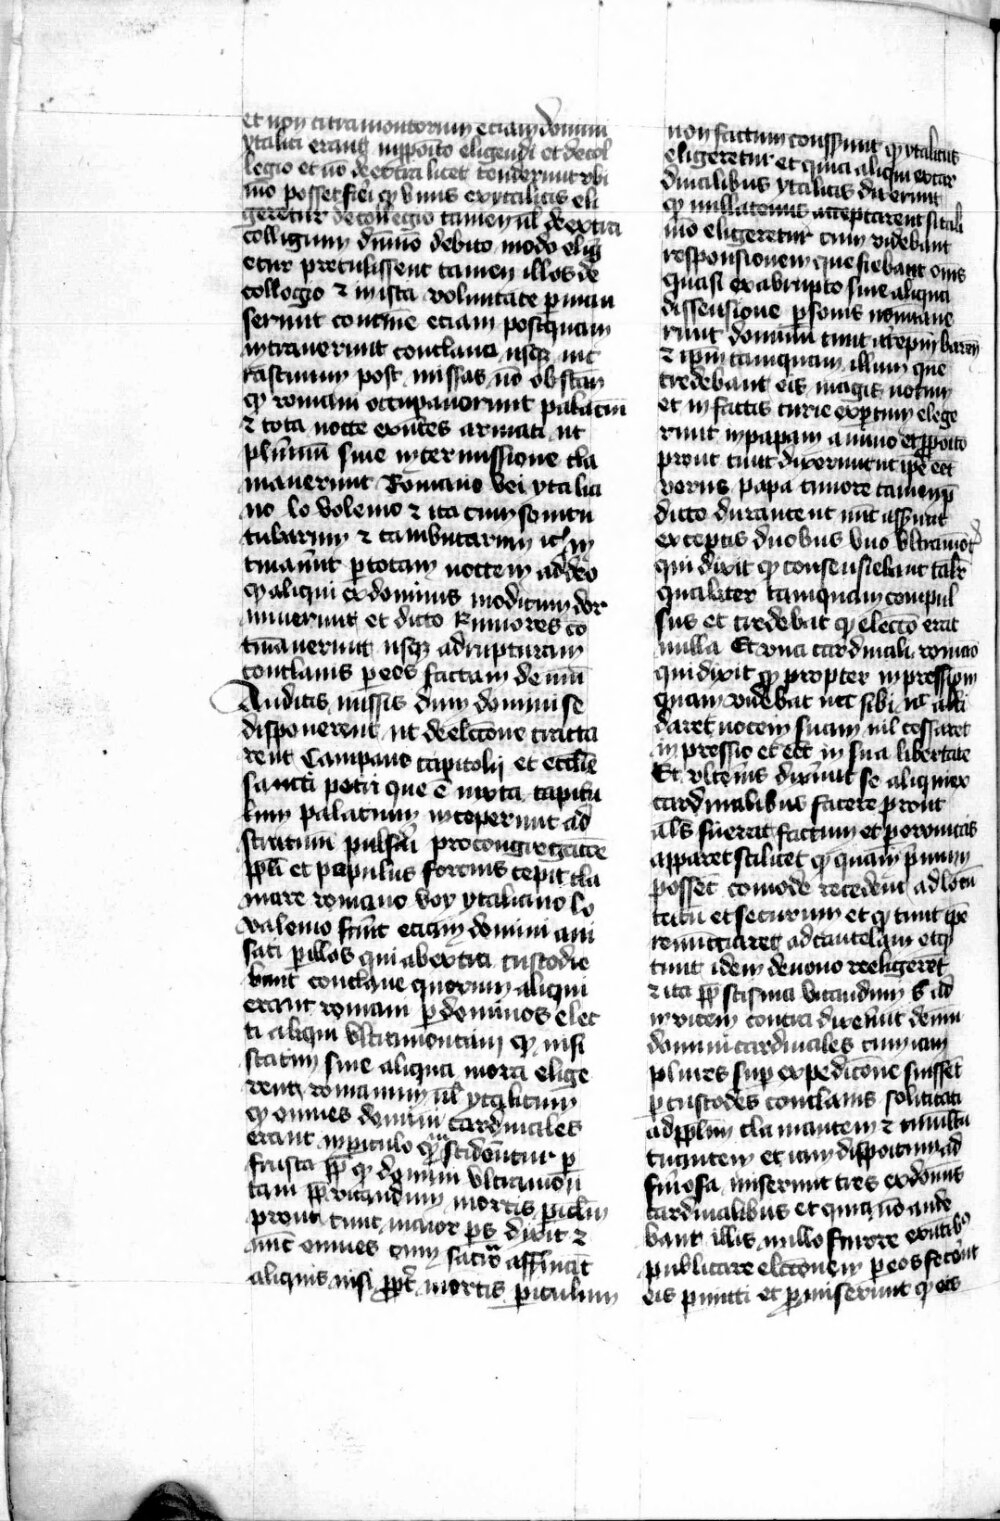 et non citramontorum eciam domini
ytalici erant in pposito eligendi et de col
legio et no de extra licet tenderunt vbi
mo posset fiei qͥ vnus ex ytalicis eli
geretur de collegio tamen ul de extra
colligium dum̄o debito modo elig
etur pretulissent tamen illos de
collegio ⁊ in ista voluntate pman
serunt contine eciam postquam
intrauerunt conclaui usqꝫ in c
rastinum post missas no obstan
qͥ romani occupauerunt palacium
⁊ tota nocte exntes armati ut
plimum sine intermissione cla
mauerunt Romano vel ytalia
no lo volemo ⁊ ita cum sonitu
tubarum ⁊ tamburarum
tinauūt p totam noctem adeo
qͥ aliqui ex dominis modicum dor
miuerunt et dicto Rumores co
tinauerunt usqꝫ ad rupturam
conclauis p eos factam demū
Auditis missis dum domini se
disponerent ut de electione tracta
rent Campane capitolij et ecclie
sancti petri que e iuxta capitu
lum palacium inceperunt ad
sturmum pulsari pro congregacione
ppli et populus forcius cepit cla
mare romano voy ytaliano lo
valemo fuūt eciam domini aui
sati p illos qui ab extra custodie
bant conclaue quorum aliqui
erant romani p dominos elec
ti aliqui vltramontani qͥ nisi
statim sine aliqua mora elige
rent romanum ul ytalicum
qͥ omnes domini cardinales
erant in piculo qͥ scidentur p
frusta pp qͥ domini vltramon
tani pp vitandum mortis piclm
prout tunc maior ps dixit ⁊
nuc omnes cum sacro affirmāt
aliquis nisi ppt mortis piculum
non factum consserunt qͥ ytalicus
eligeretur et quia aliqui ex car
dinalibus ytalicis dixerunt
qͥ nullatenus acceptarent si tali
mo eligeretur cum videbant
responsionem que fiebant oms
quasi ex abrupto sine aliqua
dissensione psonis nominaue
runt dominum tunc arepm baren
⁊ ipm tamquam illum que
credebant eis magis notum
et in factis curie expertum elege
runt in papam animo et pposito
prout tunc dixerunt ut ipe eet
verus papa timore tamen p
dicto durante ut nūc asserūt
exceptis duobus vno vltramot
qui dixit qͥ consensiebant talr
qualiter tamquam compul
sus et credebat qͥ electo erat
nulla Et vna cardinali romao
qui dixit qͥ propter impressiom
quam videbat nec sibi nc alti
daret vocem suam nil cessaret
impressio et eet in sua libertate
Et vlterius dixerūt se aliqui ex
cardinalibus facere prout
als fuerat factum et per omnias
apparet scilicet qͥ quam primum
possent comode recedent ad locū
tutū et securum et qͥ tunc ipe
renūcciaret ad cautelam et qͥ
tunc idem denouo reeligeret
⁊ ita pp scisma vitandum s ad
inuicem contra dixerūt demū
domini cardinales cum iam
plures sup expedicione fuissent
p custodes conclauis solicitati
ad pplm clamantem ⁊ tumultu
tuantem et iam dispoitum ad
furiosa miserunt tres ex dominis
cardinalibus et quia no aude
bant illis nullo furore exntibus
publicare electionem p eos fecerut
eis pmitti et pmiserunt qͥ eis